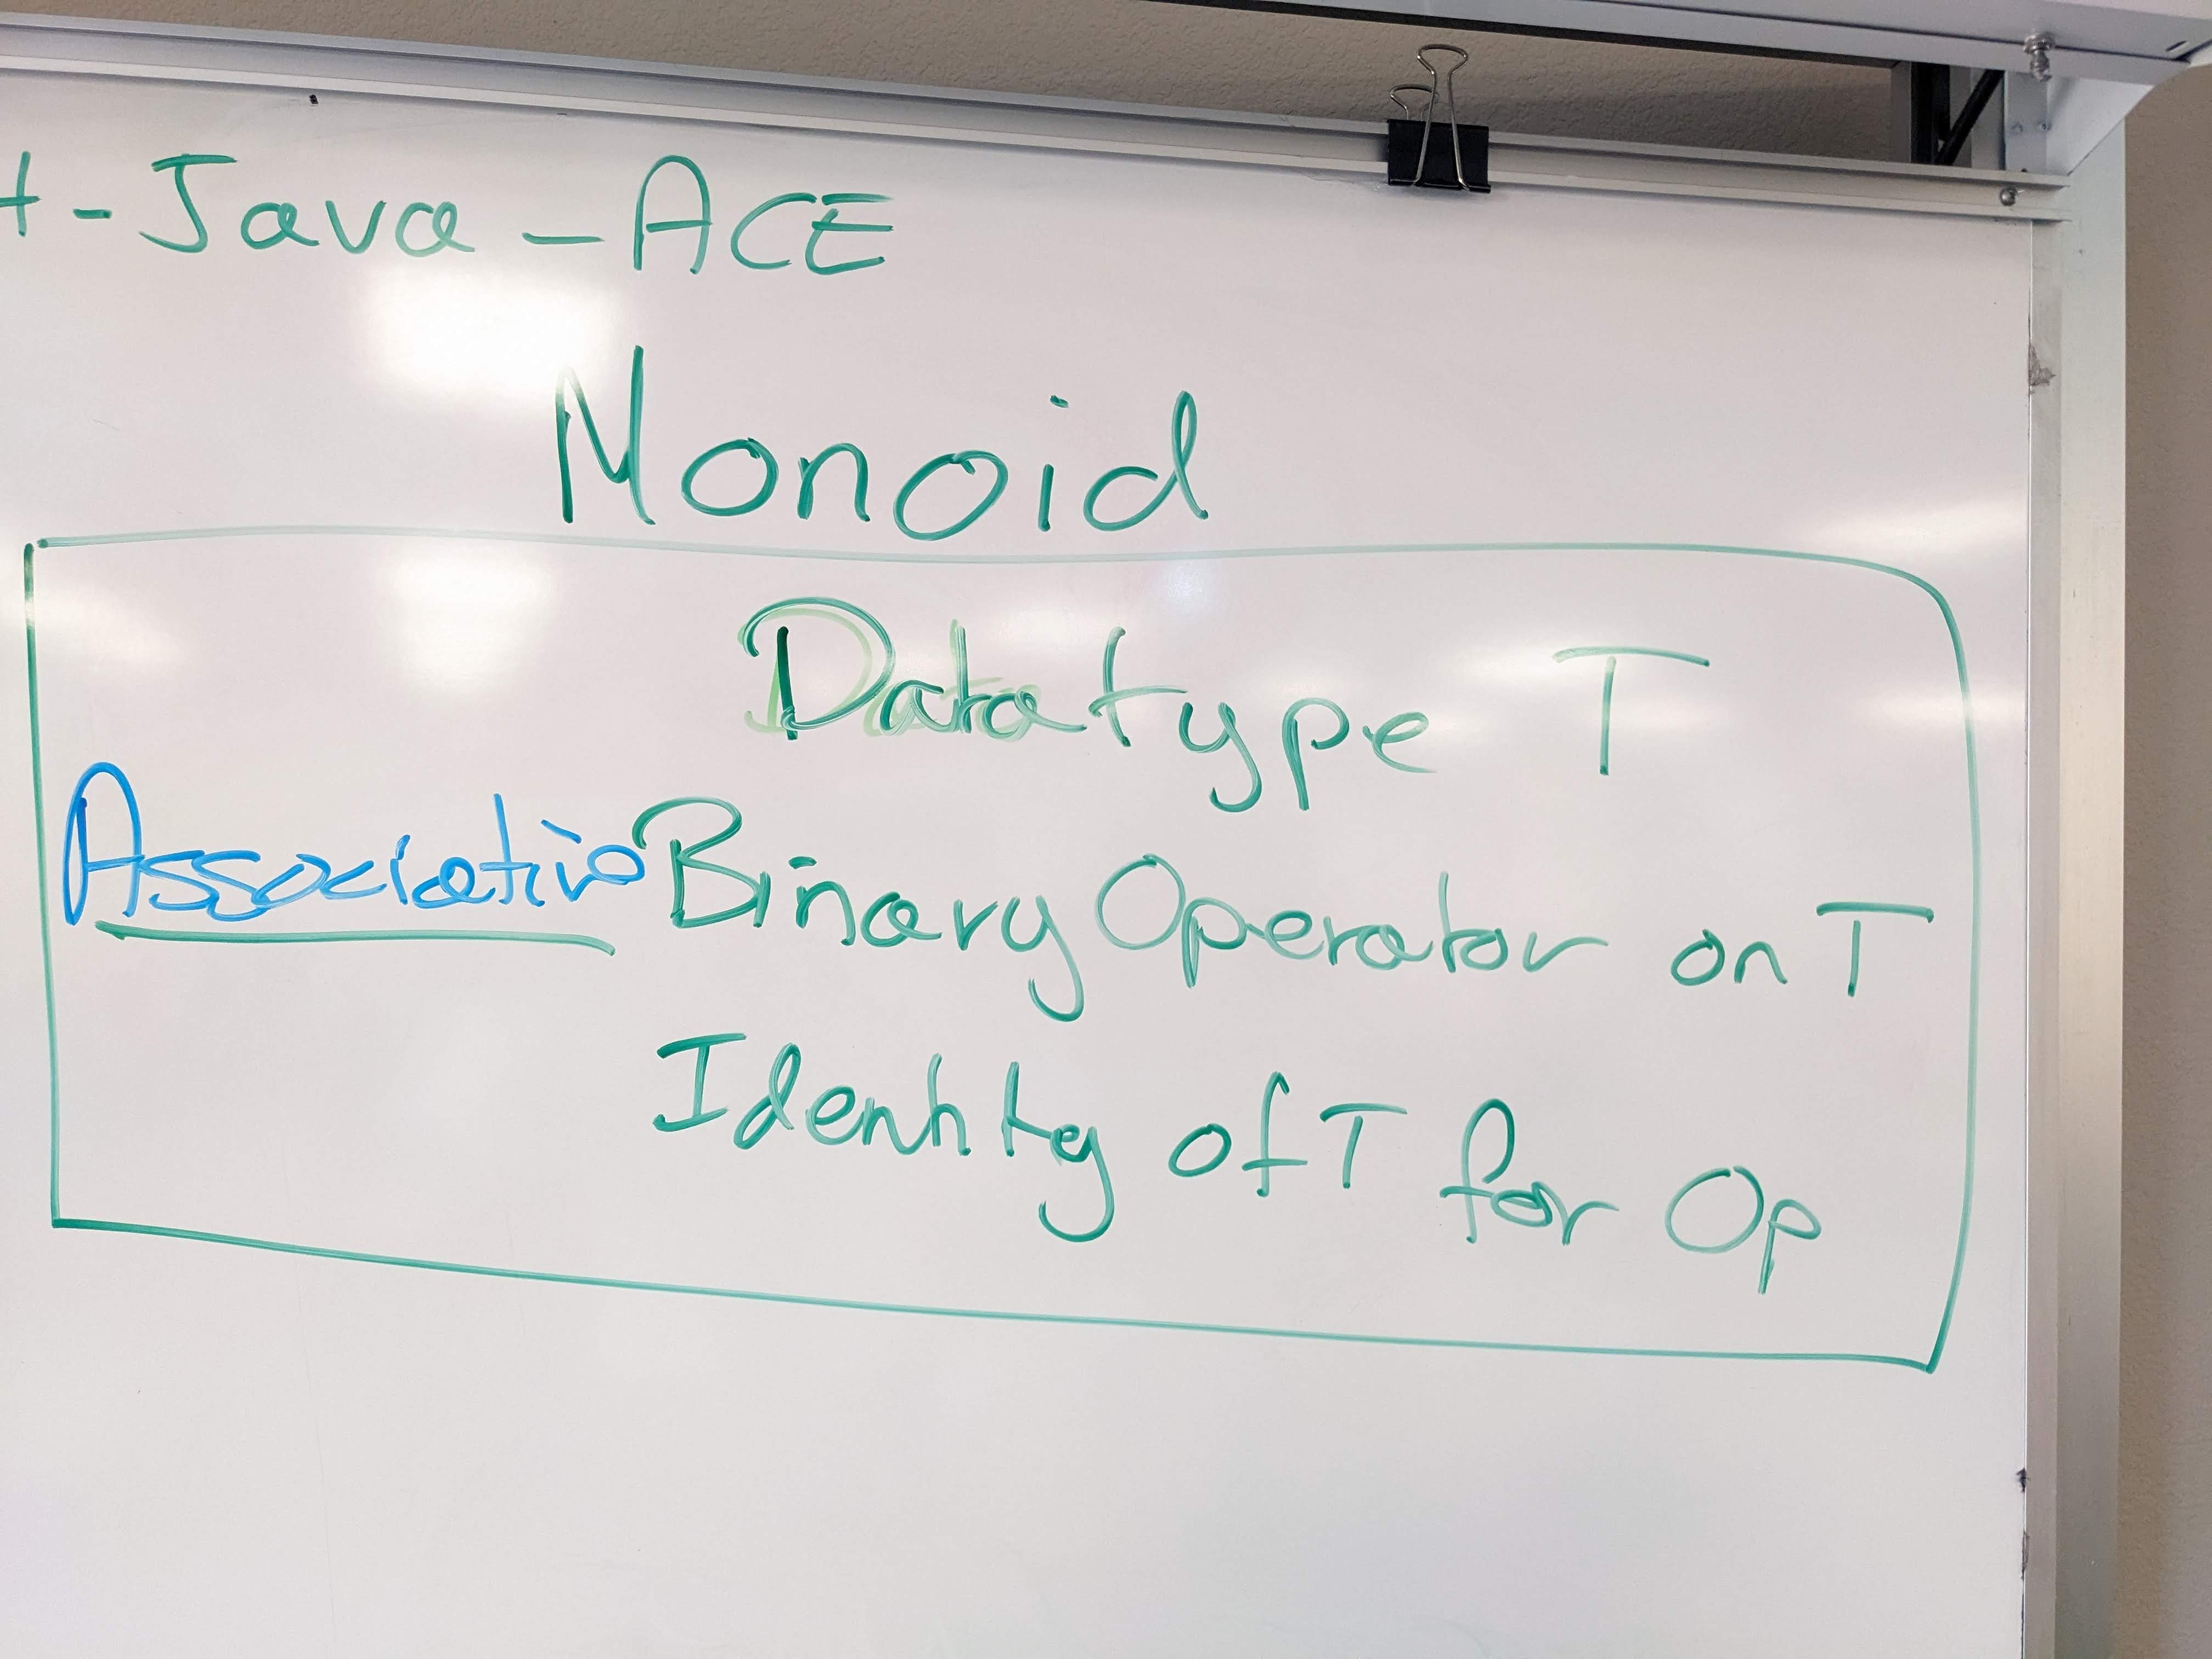 t-Java-ACE
Monoid
Datatype T
Associative Binary Operator on T
Identity of T for Op